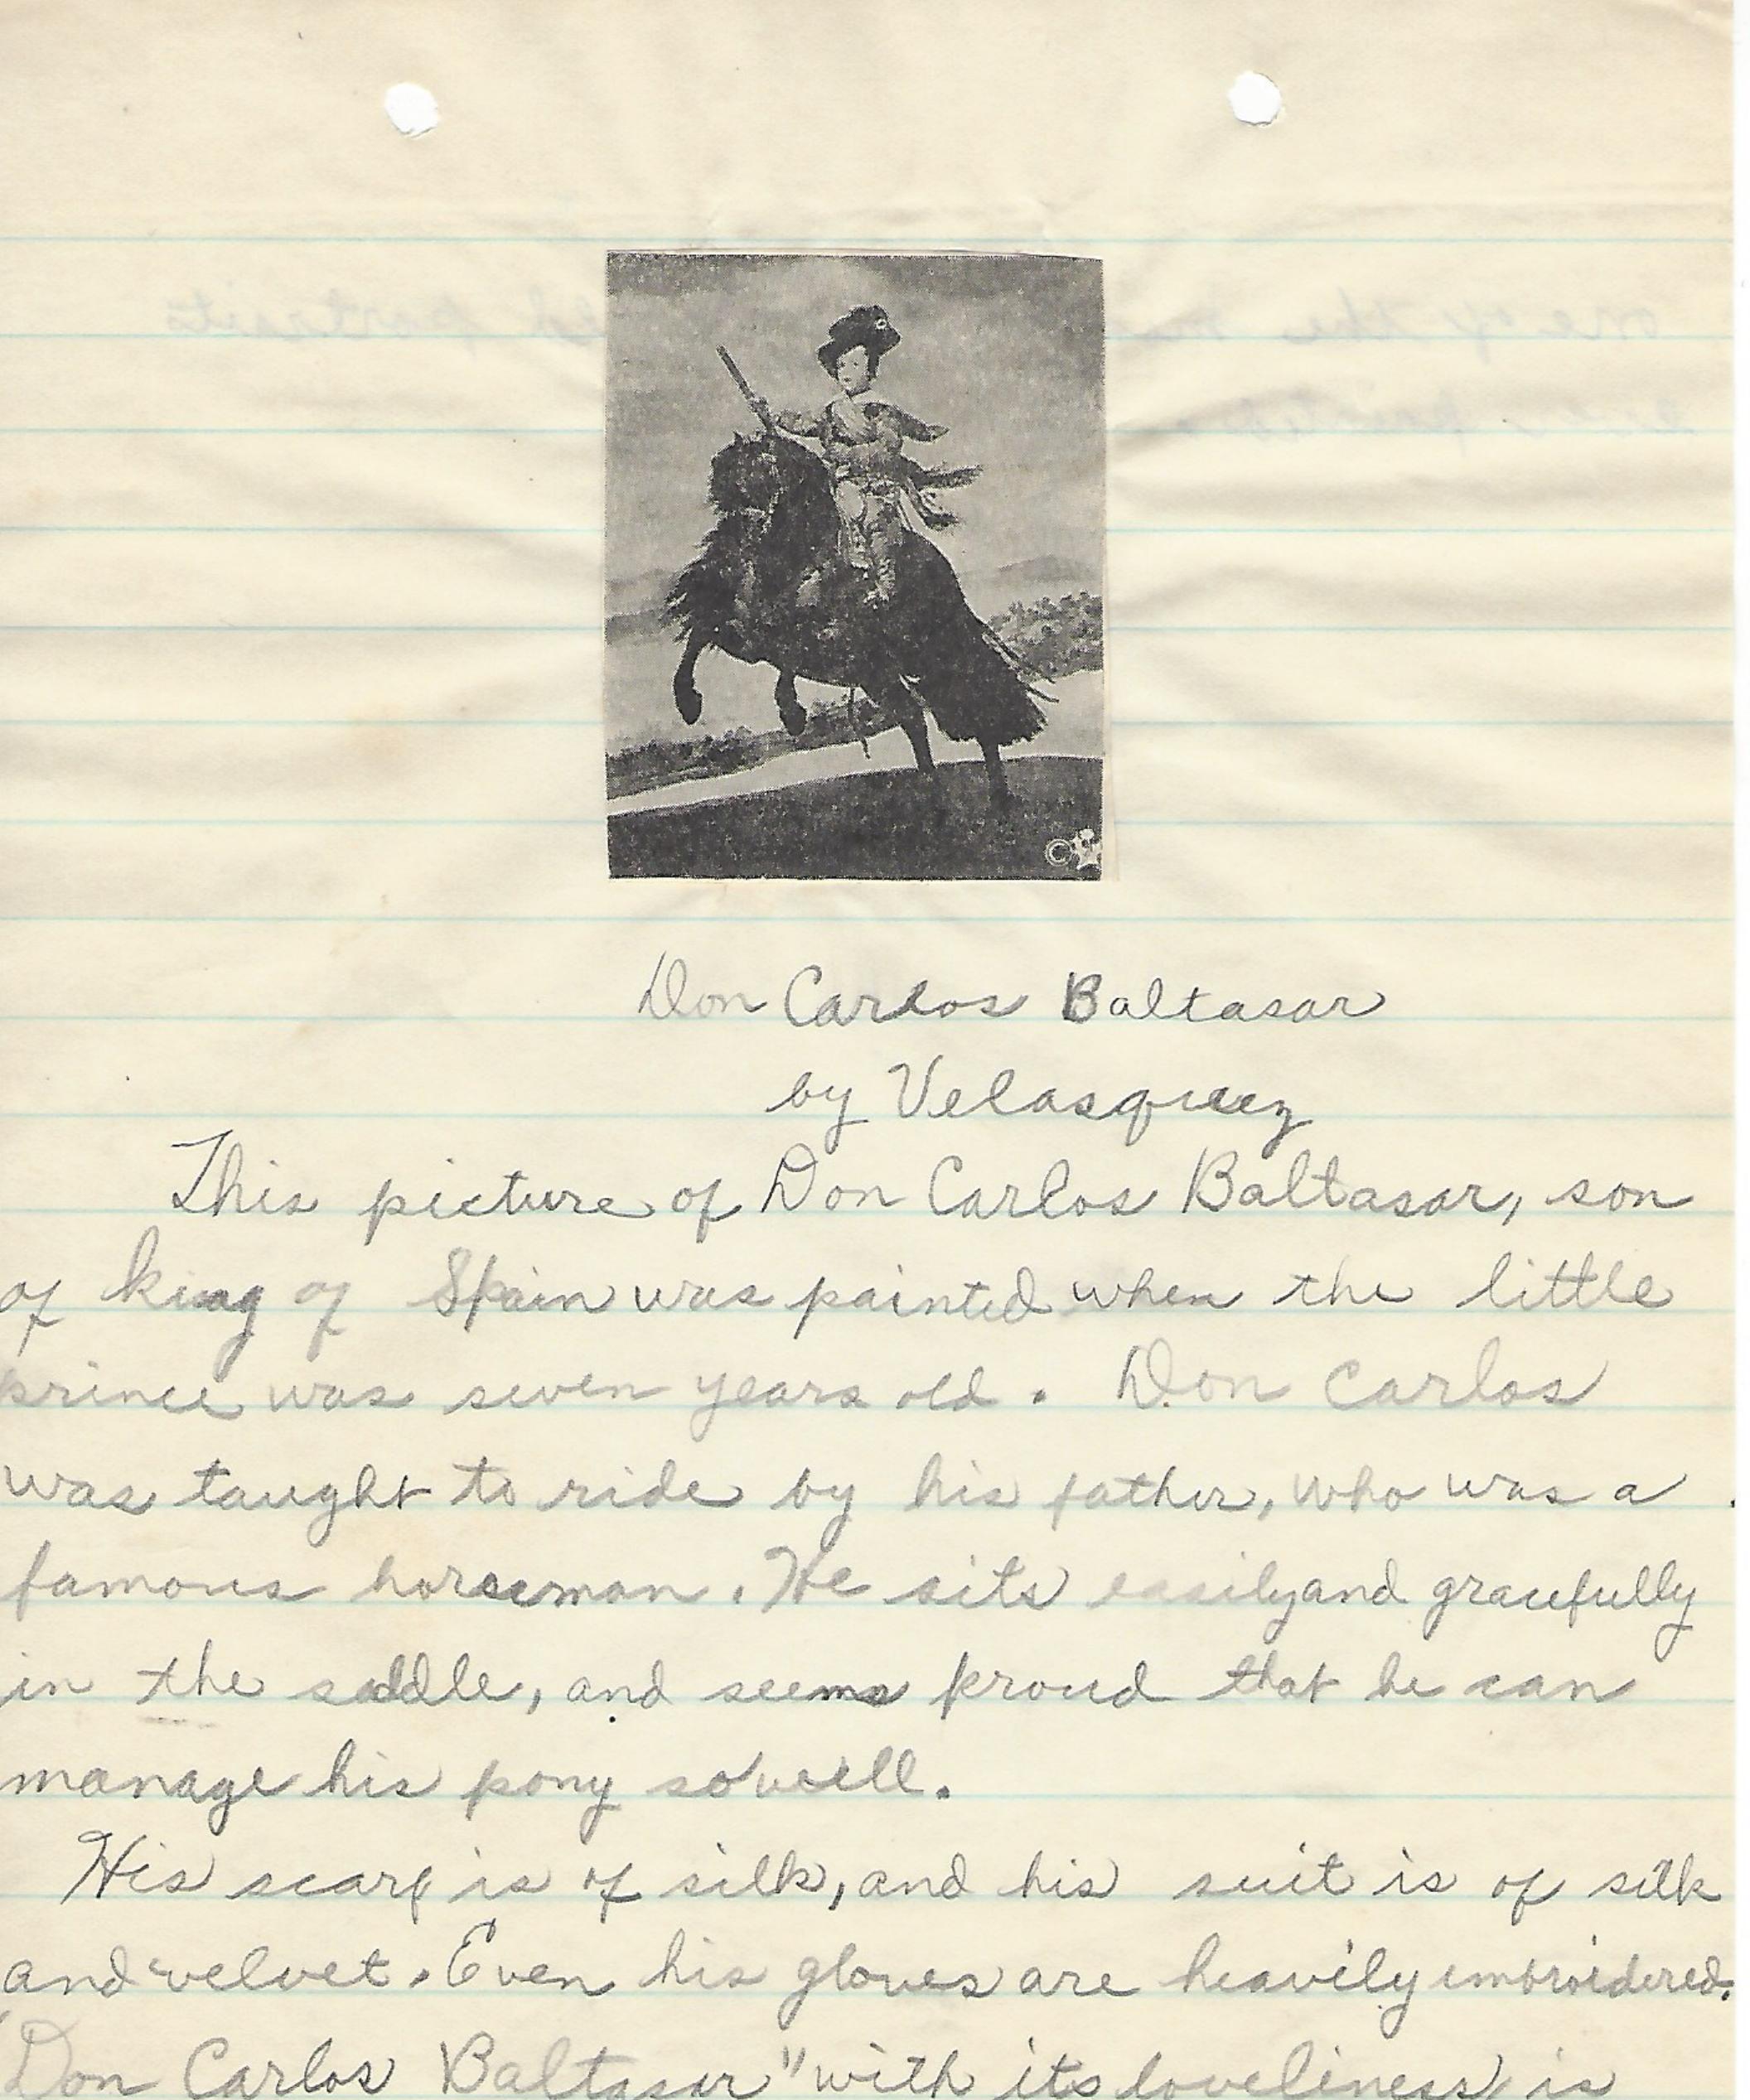 Don Carlos Baltasar
by Velasquez
This picture of Don Carlos Baltasar, son
of king of Spain was painted when the little
prince was seven years old. Don Carlos
was taught to ride by his father, who was a
famous horseman. He sits easily and gracefully
in the saddle, and seems proud that he can
manage his pony so well.
His scarf is of silk, and his suit is of silk
and velvet. Even his gloves are heavily embroidered.
"Don Carlos Baltasar" with its loveliness is